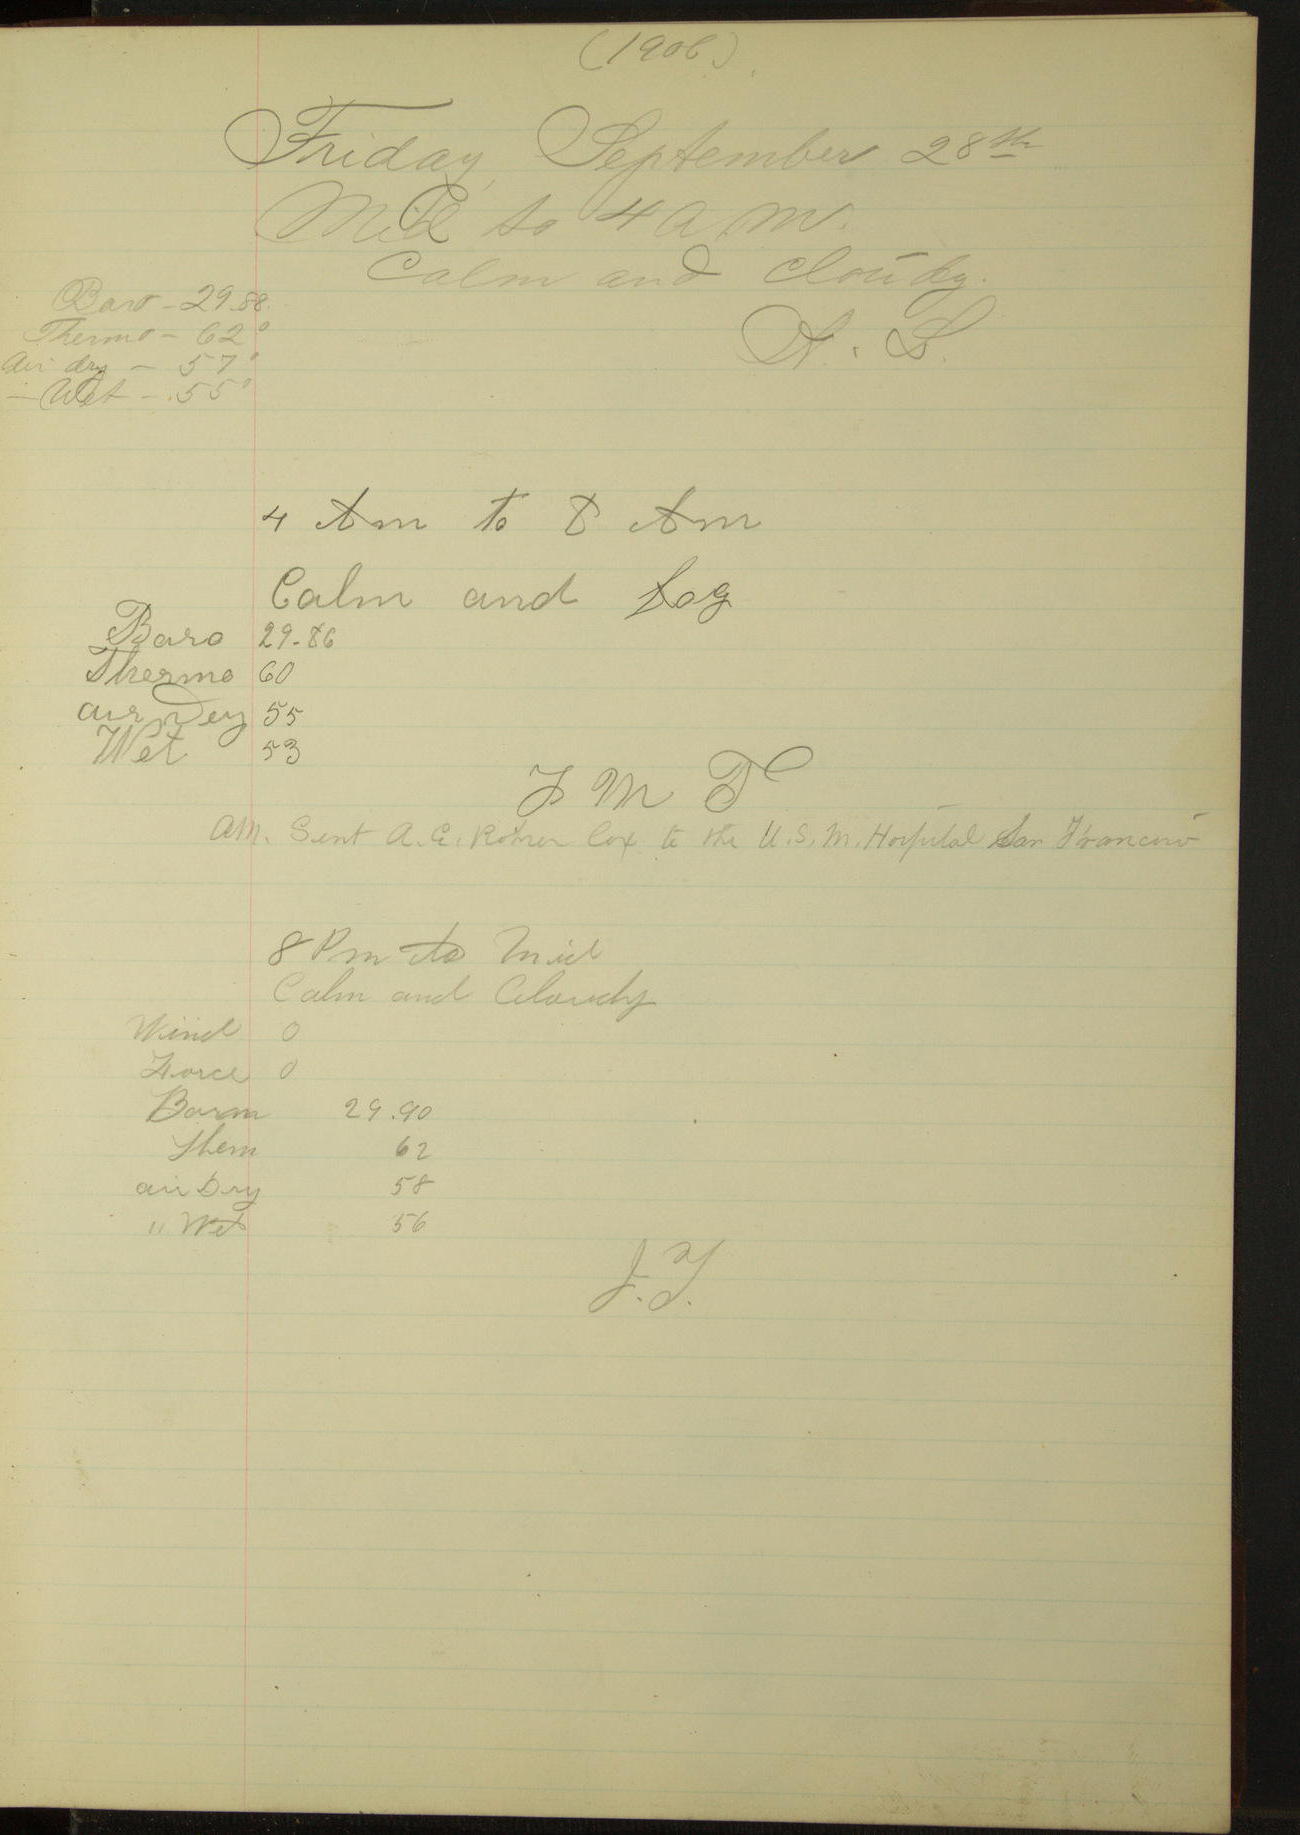 (1906)
Friday, September 28th
Mid to 4 a.m.
Calm and cloudy.
Baro - 29.88
Thermo - 62°
Air dry - 57°
- Wet - 55°
A. S.
4 Am to 8 Am
Calm and fog
Baro 29-86
Thermo 60
air Dry 55
Wet 53
F M T
AM. Sent A. E. Cox to the U.S. M. Hospital San Francisco
8 Pm to Mid
Calm and Cloudy
Wind 0
Force 0
Barom 29.90
Them 62
air Dry 58
" Wet 56
J.F.